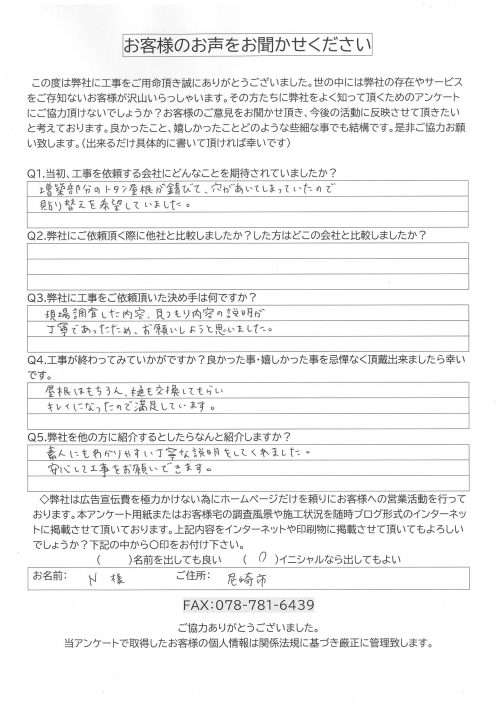 お客様のお声をお聞かせください
この度は弊社に工事をご用命頂き誠にありがとうございました。世の中には弊社の存在やサービス
をご存知ないお客様が沢山いらっしゃいます。その方たちに弊社をよく知って頂くためのアンケート
にご協力頂けないでしょうか？お客様のご意見をお聞かせ頂き、今後の活動に反映させて頂きたい
と考えております。良かったこと、嬉しかったことどのような些細な事でも結構です。是非ご協力お願
い致します。（出来るだけ具体的に書いて頂ければ幸いです）
Q1.当初、工事を依頼する会社にどんなことを期待されていましたか？
増築部分のトタン屋根が錆びて、穴があいてしまっていたので
貼り替えを希望していました。
Q2.弊社にご依頼頂く際に他社と比較しましたか？した方はどこの会社と比較しましたか？
Q3.弊社に工事をご依頼頂いた決め手は何ですか？
現場調査した内容、見つもり内容の説明が
丁寧であったため、お願いしようと思いました。
Q4.工事が終わってみていかがですか？良かった事・嬉しかった事を忌憚なく頂戴出来ましたら幸い
です。
屋根はもちろん、樋も交換してもらい
キレイになったので満足しています。
Q5.弊社を他の方に紹介するとしたらなんと紹介しますか？
素人にもわかりやすい丁寧な説明をしてくれました。
安心して工事をお願いできます。
◇弊社は広告宣伝費を極力かけない為にホームページだけを頼りにお客様への営業活動を行って
おります。本アンケート用紙またはお客様宅の調査風景や施工状況を随時ブログ形式のインターネッ
トに掲載させて頂いております。上記内容をインターネットや印刷物に掲載させて頂いてもよろしい
でしょうか？下記の中から〇印をお付け下さい。
（　　）名前を出しても良い　（ 〇 ）イニシャルなら出してもよい
お名前：　N 様　ご住所：　尼崎市
FAX:078-781-6439
ご協力ありがとうございました。
当アンケートで取得したお客様の個人情報は関係法規に基づき厳正に管理致します。